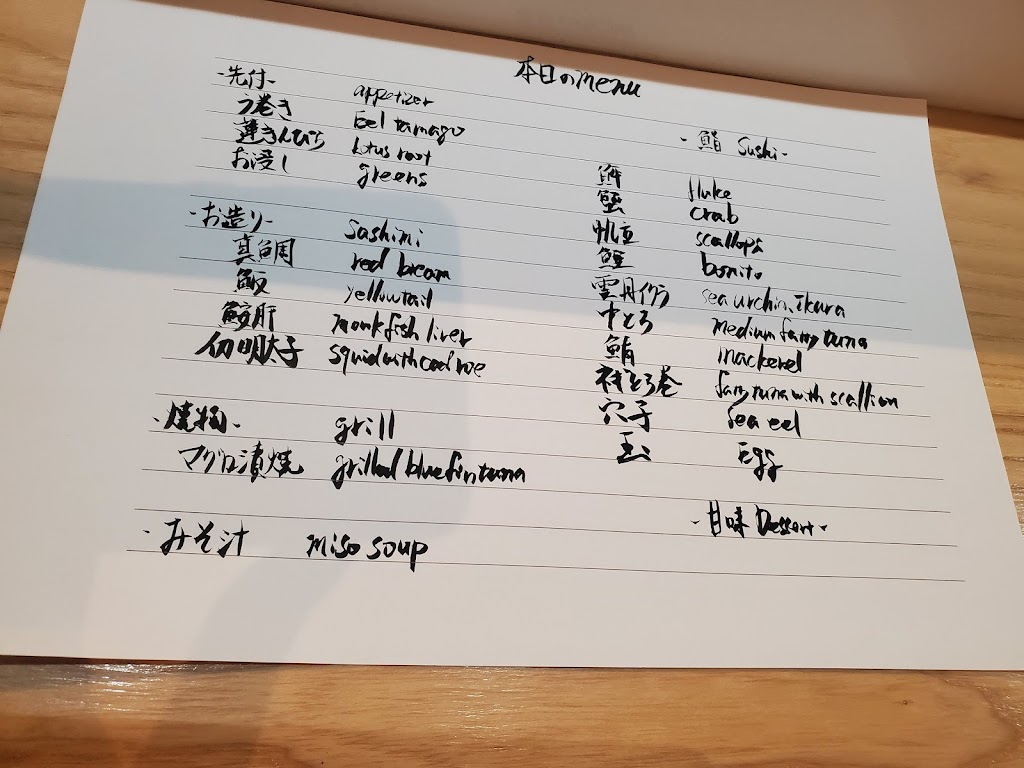 本日のmenu
-先付- appetizer
う巻き Eel tamago
蓮きんぴら lotus root
お浸し greens
-お造り- sashimi
真鯛 red bream
鰤 yellowtail
鮟肝 monkfish liver
明太子 squid with cod roe
-焼物- grill
マグロ漬焼 grilled bluefin tuna
-みそ汁 miso soup
-鮨 Sushi-
fluke
蟹 crab
帆立 scallops
鰹 bonito
雲丹 sea urchin, ikura
中とろ medium fatty tuna
鯖 mackerel
とろ巻 fatty tuna with scallion
穴子 Sea eel
玉 Egg
-甘味 Dessert-